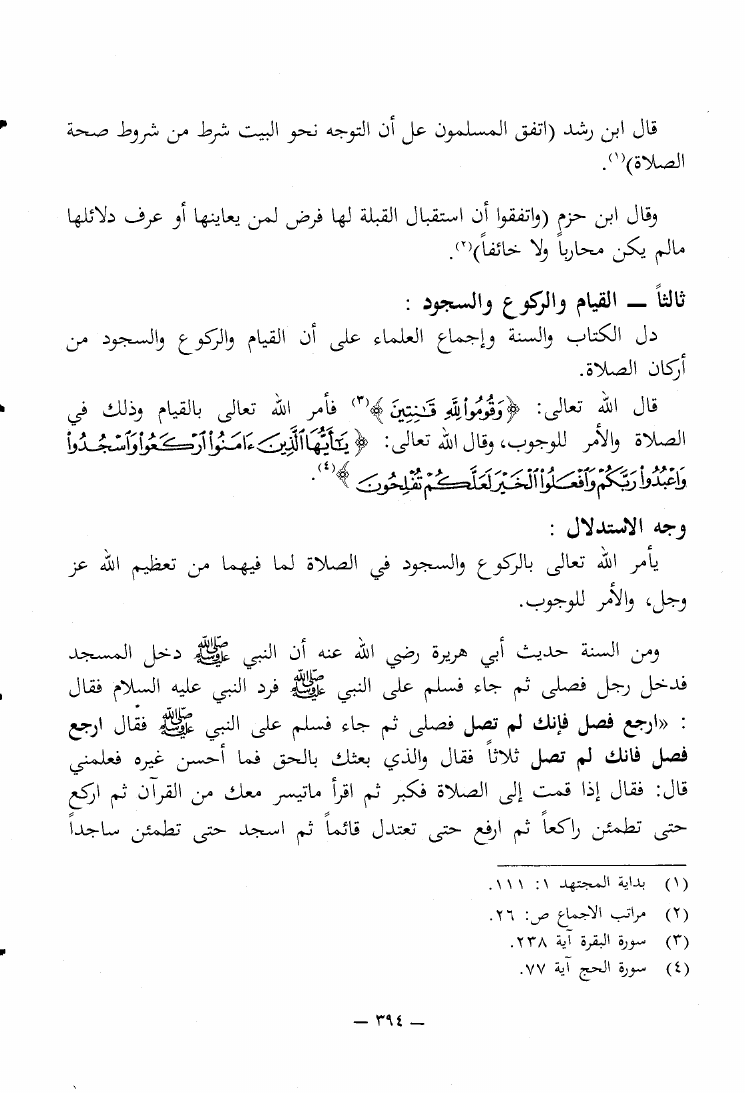 قال ابن رشد (اتفق المسلمون عل أن التوجه نحو البيت شرط من شروط صحة
الصلاة)(١).
وقال ابن حزم (واتفقوا أن استقبال القبلة لها فرض لمن يعاينها أو عرف دلائلها
مالم يكن محارباً ولا خائفاً)(٢).
ثالثاً ـــ القيام والركوع والسجود :
دل الكتاب والسنة وإجماع العلماء على أن القيام والركوع والسجود من
أركان الصلاة.
قال الله تعالى: ﴿وَقُومُوا۟ لِلَّهِ قَـٰنِتِينَ﴾(٣) فأمر الله تعالى بالقيام وذلك في
الصلاة والأمر للوجوب، وقال الله تعالى: ﴿يَـٰٓأَيُّهَا ٱلَّذِينَ ءَامَنُوا۟ ٱرْكَعُوا۟ وَٱسْجُدُوا۟
وَٱعْبُدُوا۟ رَبَّكُمْ وَٱفْعَلُوا۟ ٱلْخَيْرَ لَعَلَّكُمْ تُفْلِحُونَ﴾(٤).
وجه الاستدلال :
يأمر الله تعالى بالركوع والسجود في الصلاة لما فيهما من تعظيم الله عز
وجل، والأمر للوجوب.
ومن السنة حديث أبي هريرة رضي الله عنه أن النبي ﷺ دخل المسجد
فدخل رجل فصلى ثم جاء فسلم على النبي ﷺ فرد النبي عليه السلام فقال
: «ارجع فصل فإنك لم تصل فصلى ثم جاء فسلم على النبي ﷺ فقال ارجع
فصل فانك لم تصل ثلاثاً فقال والذي بعثك بالحق فما أحسن غيره فعلمني
قال: فقال إذا قمت إلى الصلاة فكبر ثم اقرأ ماتيسر معك من القرآن ثم اركع
حتى تطمئن راكعاً ثم ارفع حتى تعتدل قائماً ثم اسجد حتى تطمئن ساجداً
(١) بداية المجتهد ١: ١١١.
(٢) مراتب الاجماع ص: ٢٦.
(٣) سورة البقرة آية ٢٣٨.
(٤) سورة الحج آية ٧٧.
— ٣٩٤ —